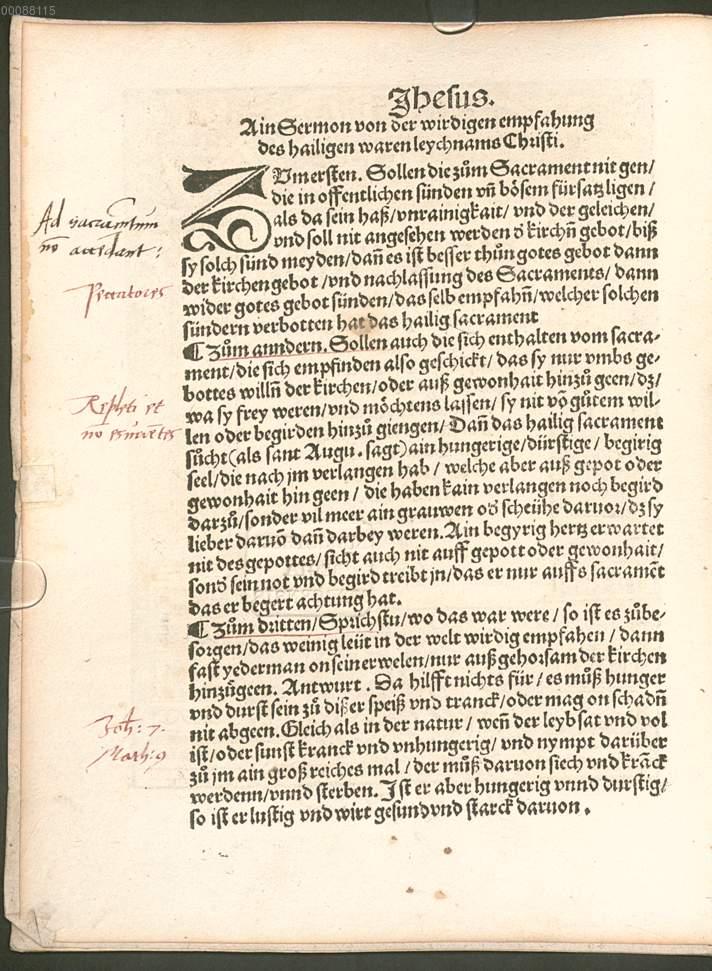 00088115
Jhesus.
Ain Sermon von der wirdigen empfahung
des hailigen waren leychnams Christi.
ZUm ersten. Sollen die zům Sacrament nit gen/
die in offentlichen sünden vñ bösem fürsatz ligen /
als da sein haß/vnrainigkait/ vnd der geleichen/
vnd soll nit angesehen werden ð kirchñ gebot/biß
sy solch sünd meyden/dañ es ist besser thůn gotes gebot dann
der kirchen gebot /vnd nachlassung des Sacraments/ dann
wider gotes gebot sünden/das selb empfahñ/welcher solchen
sündern verbotten hat das hailig sacrament
Ad sacramentum
nō accedant:
Peccatores
¶ Zům anndern. Sollen auch die sich enthalten vom sacra-
ment/die sich empfinden also geschickt/das sy nur vmbs ge-
bottes willñ der kirchen/oder auß gewonhait hinzů geen/dz/
wa sy frey weren/vnd möchtens lassen/ sy nit vō gůtem wil-
len oder begirden hinzů giengen/ Dañ das hailig sacrament
sůcht(als sant Augu. sagt)ain hungerige/dürstige/ begirig
seel/die nach jm verlangen hab/ welche aber auß gepot oder
gewonhait hin geen/ die haben kain verlangen noch begird
darzů/sonder vil meer ain grauwen oð scheühe daruor/dz sy
lieber daruō dañ darbey weren. Ain begyrig hertz erwartet
nit des gepottes/ sicht auch nit auff gepott oder gewonhait/
sonð sein not vnd begird treibt jn/das er nur auffs sacramēt
das er begert achtung hat.
Repleti et
nō esurientes
¶ Zům dritten/Sprichstu/wo das war were/ so ist es zůbe-
sorgen/das weinig leüt in der welt wirdig empfahen/ dann
fast yederman on sein erwelen/nur auß gehorsam der kirchen
hinzůgeen. Antwurt. Da hilfft nichts für/ es můß hunger
vnd durst sein zů dißer speiß vnd tranck/oder mag on schadñ
nit abgeen. Gleich als in der natur/ weñ der leyb sat vnd vol
ist/oder sunst kranck vnd vnhungerig/ vnd nympt darüber
zů jm ain groß reiches mal/ der můß daruon siech vnd krāck
werdenn/vnnd sterben. Ist er aber hungerig vnnd durstig/
so ist er lustig vnd wirt gesund vnd starck daruon.
Joh: 7.